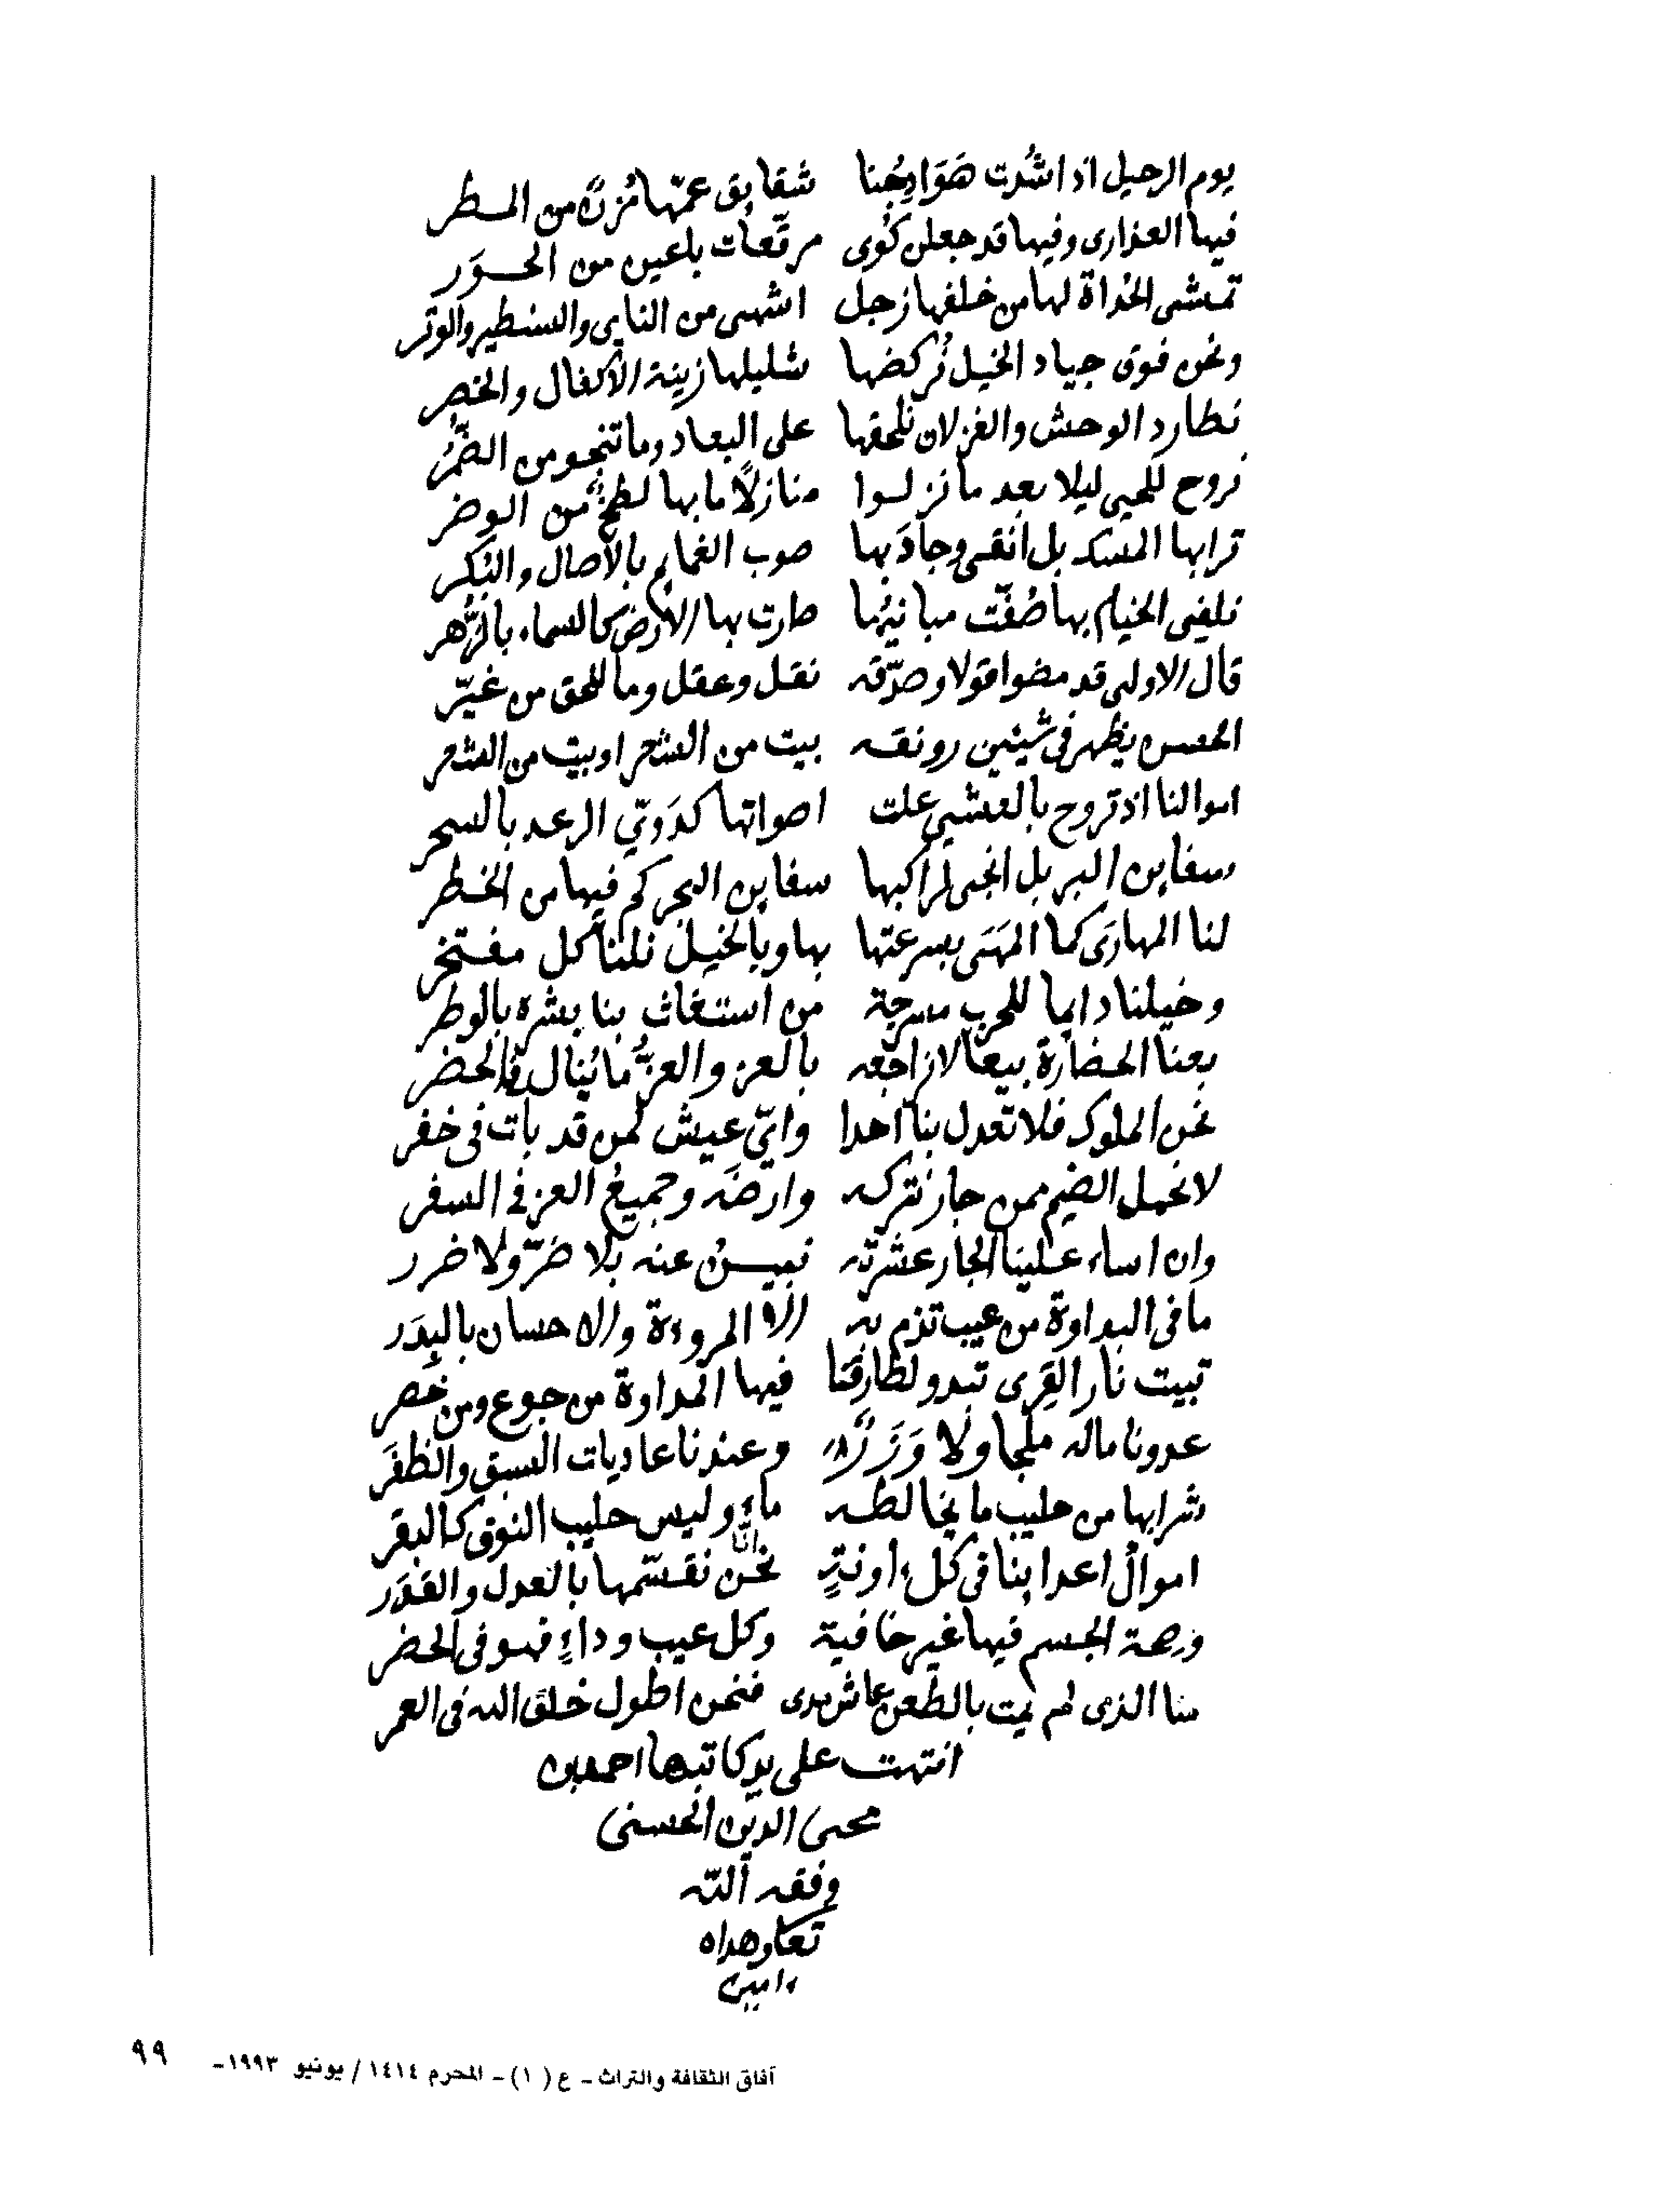 يوم الرحيل اذا شُدت هَوَادِجُنا شقايق عمّها مُزنٌ من المـطر
فيها العذارى وفيها قد جعلن كُوى مرقّعات باعين من الحـوَر
تمشى الحُداة لها من خلفها زجل اشهى من الناى والسنطير والوتر
ونحن فوق جياد الخيل نُركضها شليلها زينة الاكفال والخصر
نطارد الوحش والغزلان نلحقها على البعاد وما تنجو من الضّمُر
نروح للحى ليلا بعد ما نزلوا منازلًا ما بها لطخٌ من الوضر
ترابها المسك بل انقى وجادَ بها صوب الغمايم بالاصال والبُكر
نلفى الخيام بها صُفّت مبانيُها صارت بها الارض كالسماء بالزُّهر
قال الاولى قد مضوا قولا وصدّقه نقل وعقل وما للحق من غيَر
الحسن يظهر فى شيئين رونقه بيت من الشعر او بيت من الشعر
اموالنا اذ تروح بالعشى علت اصواتها كدَوىّ الرعد بالسحر
سفاين البر بل انجى لراكبها سفاين البحر كم فيها من الخطر
لنا المهارَى كما المهَى بسرعتها بها وبالخيل نلنا كل مفتخر
وخيلنا دايما للحرب مسرجة من استغاث بنا بشره بالوطر
بعنا الحضارة بيعا لا نراجعه بالعز والعزُّ ما يُنال فى الحضر
نحن الملوك فلا تعدل بنا احدا وايّ عيش لمن قد بات فى خفر
لا نحمل الضيم ممن جار نتركه وارضَه وجميعُ العز فى السفر
وان اساء علينا الجار عشرته نبيـنُ عنه بلا ضرّ ولا ضرر
ما فى البداوة من عيب تذم به الا المروءة والاحسان بالبِدَر
تبيت نار القِرى تبدو لطارقنا فيها المداوة من جوع ومن خصر
عدونا ماله ملجا ولا وَزَرٌ وعندنا عاديات السبق والظفَر
شرابها من حليب ما يخالطه ماءٌ وليس حليب النوق كالبقر
اموالُ اعداينا فى كل ءاونةٍ انّا نحن نقسّمها بالعدل والقدَر
وصحة الجسم فيها غير خافية وكل عيب وداءٍ فهو فى الحضر
منا الذى لم يمت بالطعن عاش مدى فنحن اطول خلق الله فى العمر
انتهت على يد كاتبها احمد بن
محيى الدين الحسنى
وفقه اللّه
تعا وهداه
ءامين
آفاق الثقافة والتراث - ع (١) - المحرم ١٤١٤ / يونيو ١٩٩٣- ٩٩